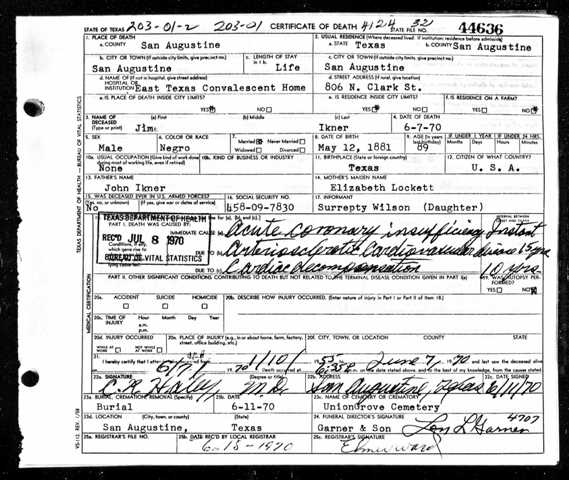 STATE OF TEXAS 203-01-2 203-01 CERTIFICATE OF DEATH 4124 32 44636
1. PLACE OF DEATH
a. COUNTY San Augustine
2. USUAL RESIDENCE (Where deceased lived. If institution: residence before admission)
a. STATE Texas b. COUNTY San Augustine
b. CITY OR TOWN (If outside city limits, give precinct no.) San Augustine
c. LENGTH OF STAY in 1 b. Life
c. CITY OR TOWN (If outside city limits, give precinct no.) San Augustine
d. NAME OF (If not in hospital, give street address) HOSPITAL OR INSTITUTION East Texas Convalescent Home
d. STREET ADDRESS (If rural, give location) 806 N. Clark St.
e. IS PLACE OF DEATH INSIDE CITY LIMITS? YES NO
e. IS RESIDENCE INSIDE CITY LIMITS? YES NO
f. IS RESIDENCE ON A FARM? YES NO
3. NAME OF DECEASED (Type or print)
(a) First Jim (b) Middle (c) Last Ikner
4. DATE OF DEATH 6-7-70
5. SEX Male
6. COLOR OR RACE Negro
7. Married Never Married Widowed Divorced
8. DATE OF BIRTH May 12, 1881
9. AGE (In years last birthday) 89
IF UNDER 1 YEAR Months Days
IF UNDER 24 HRS. Hours Min.
10a. USUAL OCCUPATION (Give kind of work done during most of working life, even if retired) None
10b. KIND OF BUSINESS OR INDUSTRY
11. BIRTHPLACE (State or foreign country) Texas
12. CITIZEN OF WHAT COUNTRY? U. S. A.
13. FATHER'S NAME John Ikner
14. MOTHER'S MAIDEN NAME Elizabeth Lockett
15. WAS DECEASED EVER IN U.S. ARMED FORCES? (Yes, no, or unknown) (If yes, give war or dates of service) No
16. SOCIAL SECURITY NO. 458-09-7830
17. INFORMANT Surrepty Wilson (Daughter)
TEXAS DEPARTMENT OF HEALTH
REC'D JUL 8 1970
BUREAU OF VITAL STATISTICS
PART I. DEATH WAS CAUSED BY:
IMMEDIATE CAUSE (a) Acute coronary insufficiency Instant
DUE TO (b) Arteriosclerotic Cardiovascular disease 15 yrs
DUE TO (c) Cardiac decompensation 10 yrs.
PART II. OTHER SIGNIFICANT CONDITIONS CONTRIBUTING TO DEATH BUT NOT RELATED TO THE TERMINAL DISEASE CONDITION GIVEN IN PART I (a)
19. WAS AUTOPSY PERFORMED? YES NO
20a. ACCIDENT SUICIDE HOMICIDE
20b. DESCRIBE HOW INJURY OCCURRED. (Enter nature of injury in Part I or Part II of item 18.)
20c. TIME OF INJURY Hour Month Day Year a.m. p.m.
20d. INJURY OCCURRED WHILE AT WORK NOT WHILE AT WORK
20e. PLACE OF INJURY (e.g., in or about home, farm, factory, street, office building, etc.)
20f. CITY, TOWN, OR LOCATION COUNTY STATE
21. I hereby certify that I attended the deceased from 1/10/ 1955 to June 7, 1970 and last saw the deceased alive
on 6/7/ 1970 Death occurred at 6:35 m. on the date stated above, and to the best of my knowledge, from the causes stated.
22a. SIGNATURE C. R. Haley, M.D. (Degree or title)
22b. ADDRESS San Augustine, Texas
22c. DATE SIGNED 6/11/70
23a. BURIAL, CREMATION, REMOVAL (Specify) Burial
23b. DATE 6-11-70
23c. NAME OF CEMETERY OR CREMATORY Uniongrove Cemetery
23d. LOCATION (City, town, or county) (State) San Augustine, Texas
24. FUNERAL DIRECTOR'S SIGNATURE Garner & Son Lon L Garner 4707
25a. REGISTRAR'S FILE NO.
25b. DATE REC'D BY LOCAL REGISTRAR 6-15-1970
25c. REGISTRAR'S SIGNATURE
TEXAS DEPARTMENT OF HEALTH — BUREAU OF VITAL STATISTICS
MEDICAL CERTIFICATION